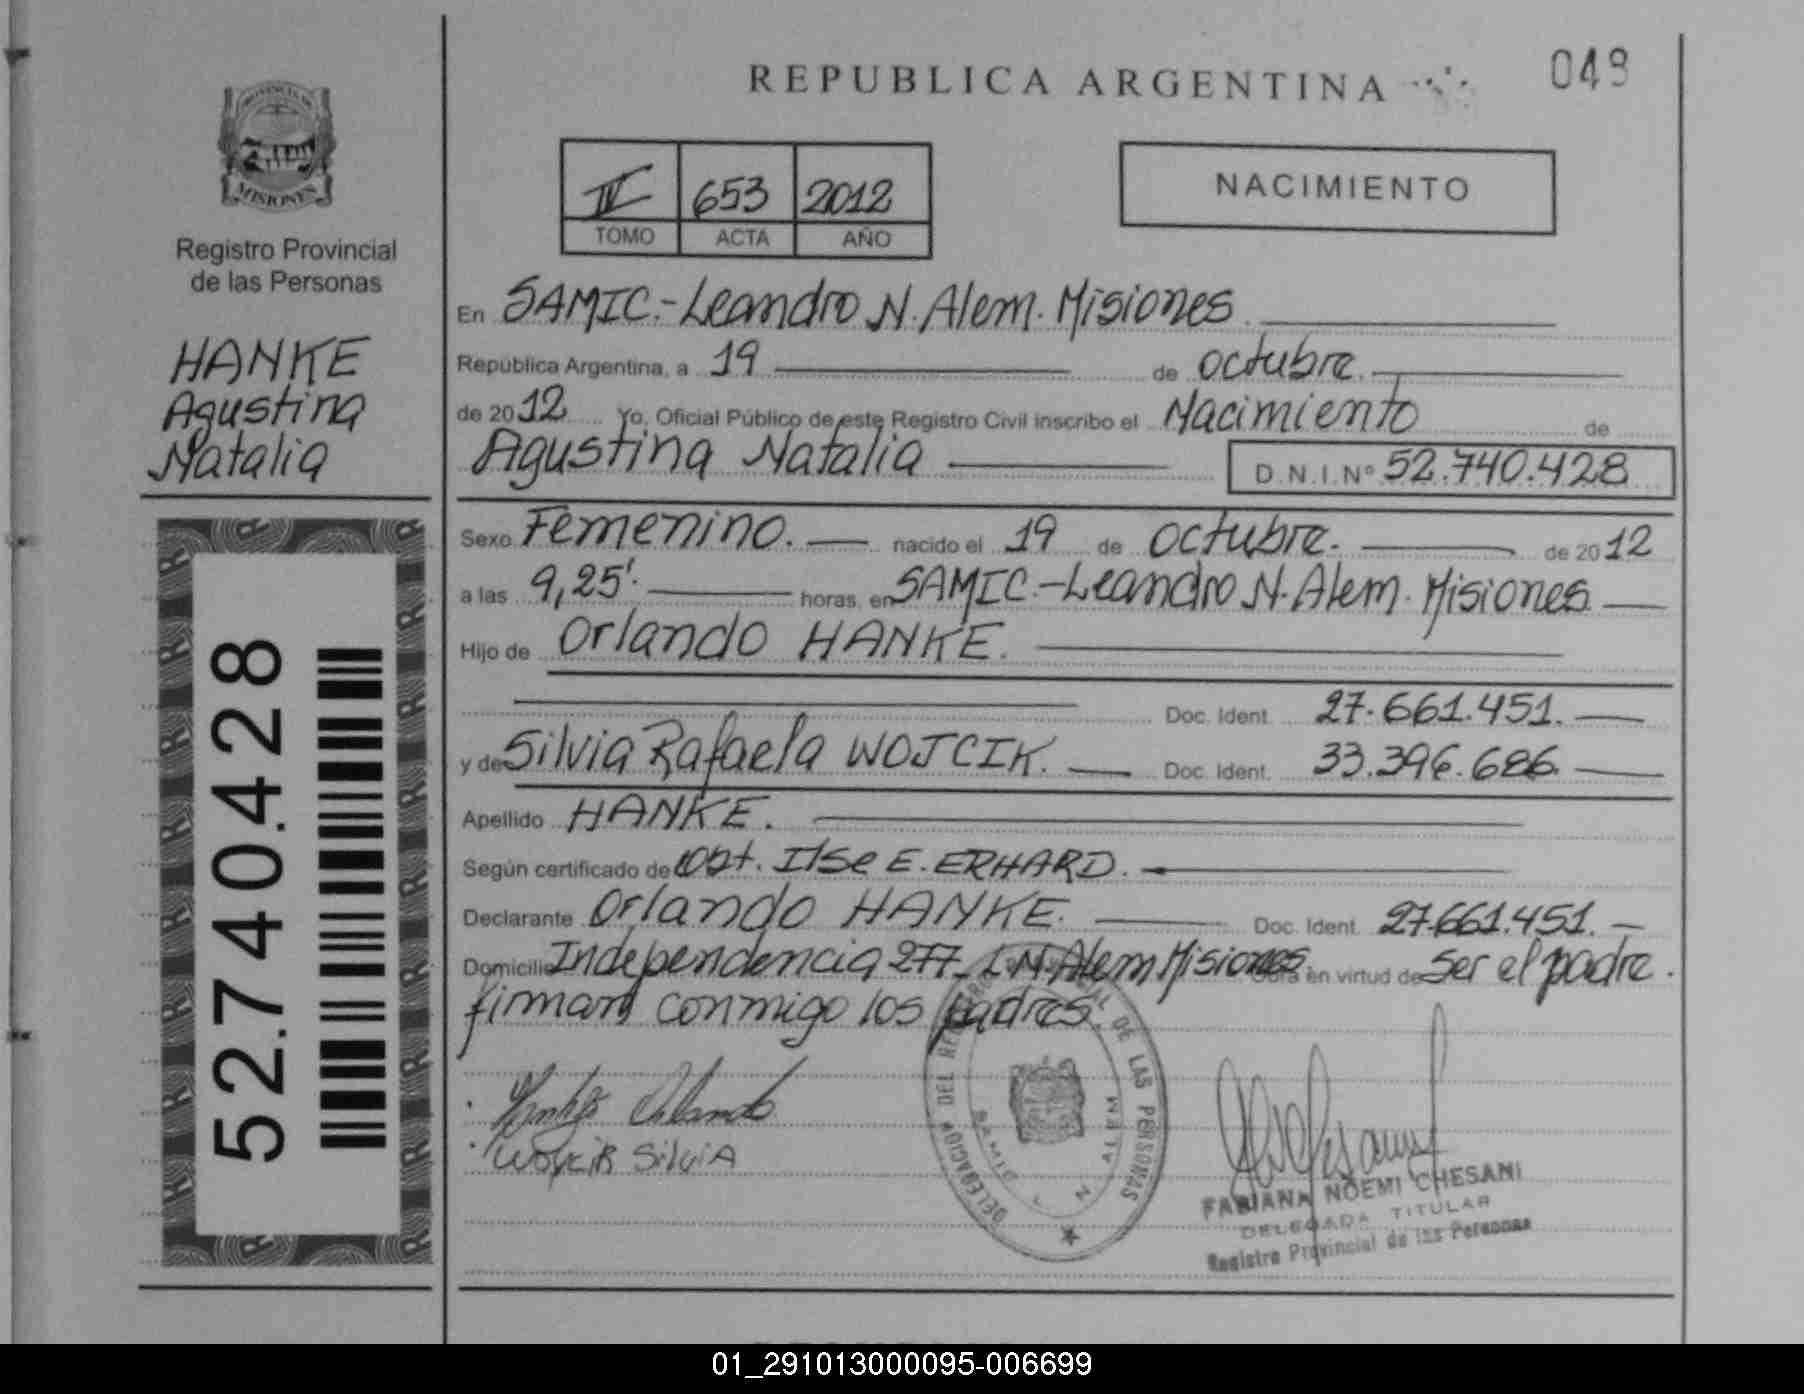 REPUBLICA ARGENTINA
049
PROVINCIA DE
MISIONES
Registro Provincial
de las Personas
HANKE
Agustina
Natalia
52.740.428
IV 653 2012
TOMO ACTA AÑO
NACIMIENTO
En SAMIC.-Leandro N. Alem. Misiones
República Argentina, a 19 de octubre.
de 2012 Yo, Oficial Público de este Registro Civil inscribo el Nacimiento de
Agustina Natalia D.N.I.Nº 52.740.428
Sexo Femenino. nacido el 19 de octubre. de 2012
a las 9,25'. horas, en SAMIC.-Leandro N. Alem. Misiones
Hijo de Orlando HANKE.
Doc. Ident. 27.661.451.
y de Silvia Rafaela WOJCIK. Doc. Ident. 33.396.686.
Apellido HANKE.
Según certificado de Obst. Ilse E. ERHARD.
Declarante Orlando HANKE. Doc. Ident. 27.661.451.
Domicilio Independencia 277 L N Alem Misiones Obra en virtud de Ser el padre.
firman conmigo los padres.
Orlando
Silvia
DELEGACION DEL REGISTRO PROVINCIAL DE LAS PERSONAS
L N ALEM
FABIANA NOEMI CHESANI
DELEGADA TITULAR
Registro Provincial de las Personas
01_291013000095-006699